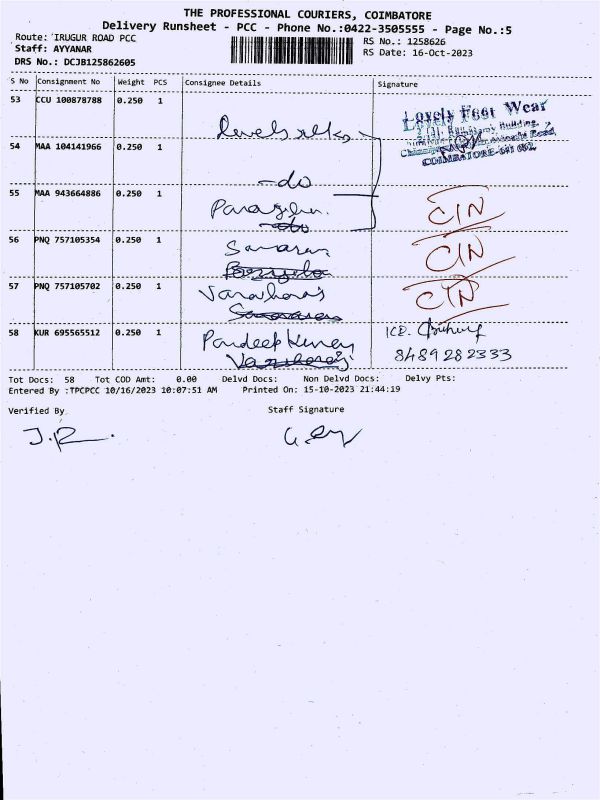 THE PROFESSIONAL COURIERS, COIMBATORE
Delivery Runsheet - PCC - Phone No.:0422-3505555 - Page No.:5
Route: IRUGUR ROAD PCC
RS No.: 1258626
Staff: AYYANAR
RS Date: 16-Oct-2023
DRS No.: DCJB125862605
S No Consignment No Weight PCS Consignee Details Signature
53 CCU 100878788 0.250 1
Lovely Foot Wear
COIMBATORE-641 062
54 MAA 104141966 0.250 1
-do
55 MAA 943664886 0.250 1
C/N
56 PNQ 757105354 0.250 1
C/N
57 PNQ 757105702 0.250 1
C/N
58 KUR 695565512 0.250 1
Pandeep Kumar
8489282333
Tot Docs: 58 Tot COD Amt: 0.00 Delvd Docs: Non Delvd Docs: Delvy Pts:
Entered By :TPCPCC 10/16/2023 10:07:51 AM Printed On: 15-10-2023 21:44:19
Verified By
Staff Signature
J.R.